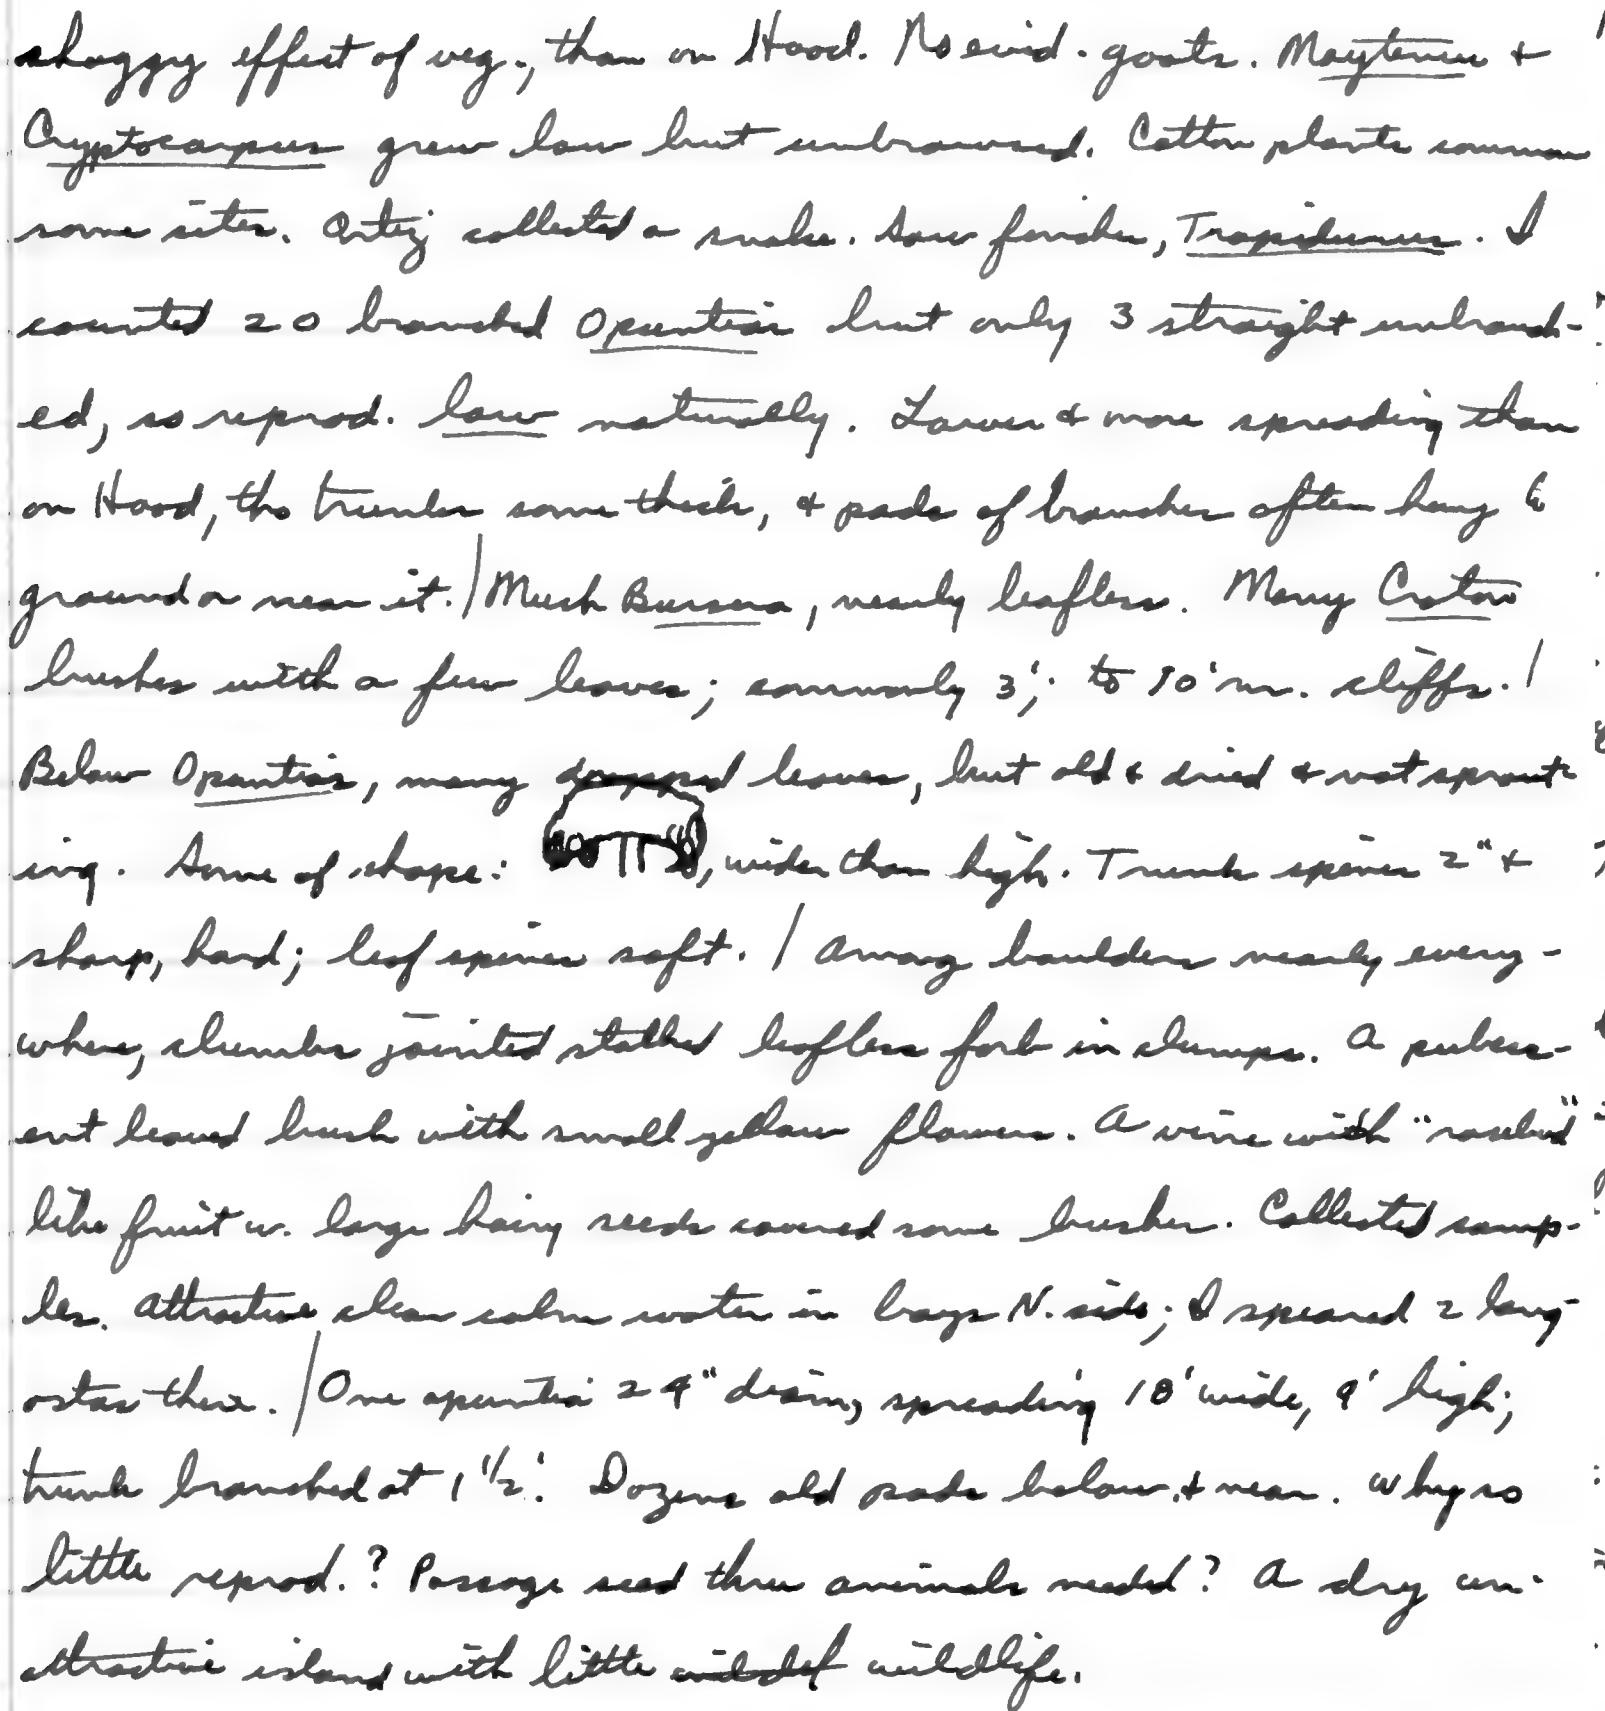 shaggy effect of veg., than on Hood. No evid. goats. Maytenus +
Cryptocarpus grew low but unbrowsed. Cotton plants common
some sites. Ortiz collected a snake. Saw finches, Tropidurus. I
counted 20 branched Opuntias but only 3 straight unbranch-
ed, so reprod. low naturally. Lower & more spreading than
on Hood, tho trunks some thick, & pads of branches often hang to
ground or near it. / Much Bursera, nearly leafless. Many Croton
bushes with a few leaves; commonly 3'; to 10' nr. cliffs. /
Below Opuntias, many dropped leaves, but old & dried & not sprout-
ing. Some of shape: , wider than high. Trunk spines 2" +
sharp, hard; leaf spines soft. / Among boulders nearly every-
where, slender jointed stalked leafless forb in clumps. A pubesc-
ent leaved bush with small yellow flowers. A vine with "rosebud"
like fruit w. large hairy seeds covered some bushes. Collected samp-
les. Attractive clear calm water in bays N. side; I speared 2 lang-
ostas there. / One opuntia 24" diam, spreading 18' wide, 9' high;
trunk branched at 1 1/2'. Dozens old pads below & near. Why so
little reprod.? Passage seed thru animals needed? A dry un-
attractive island with little wildlife.